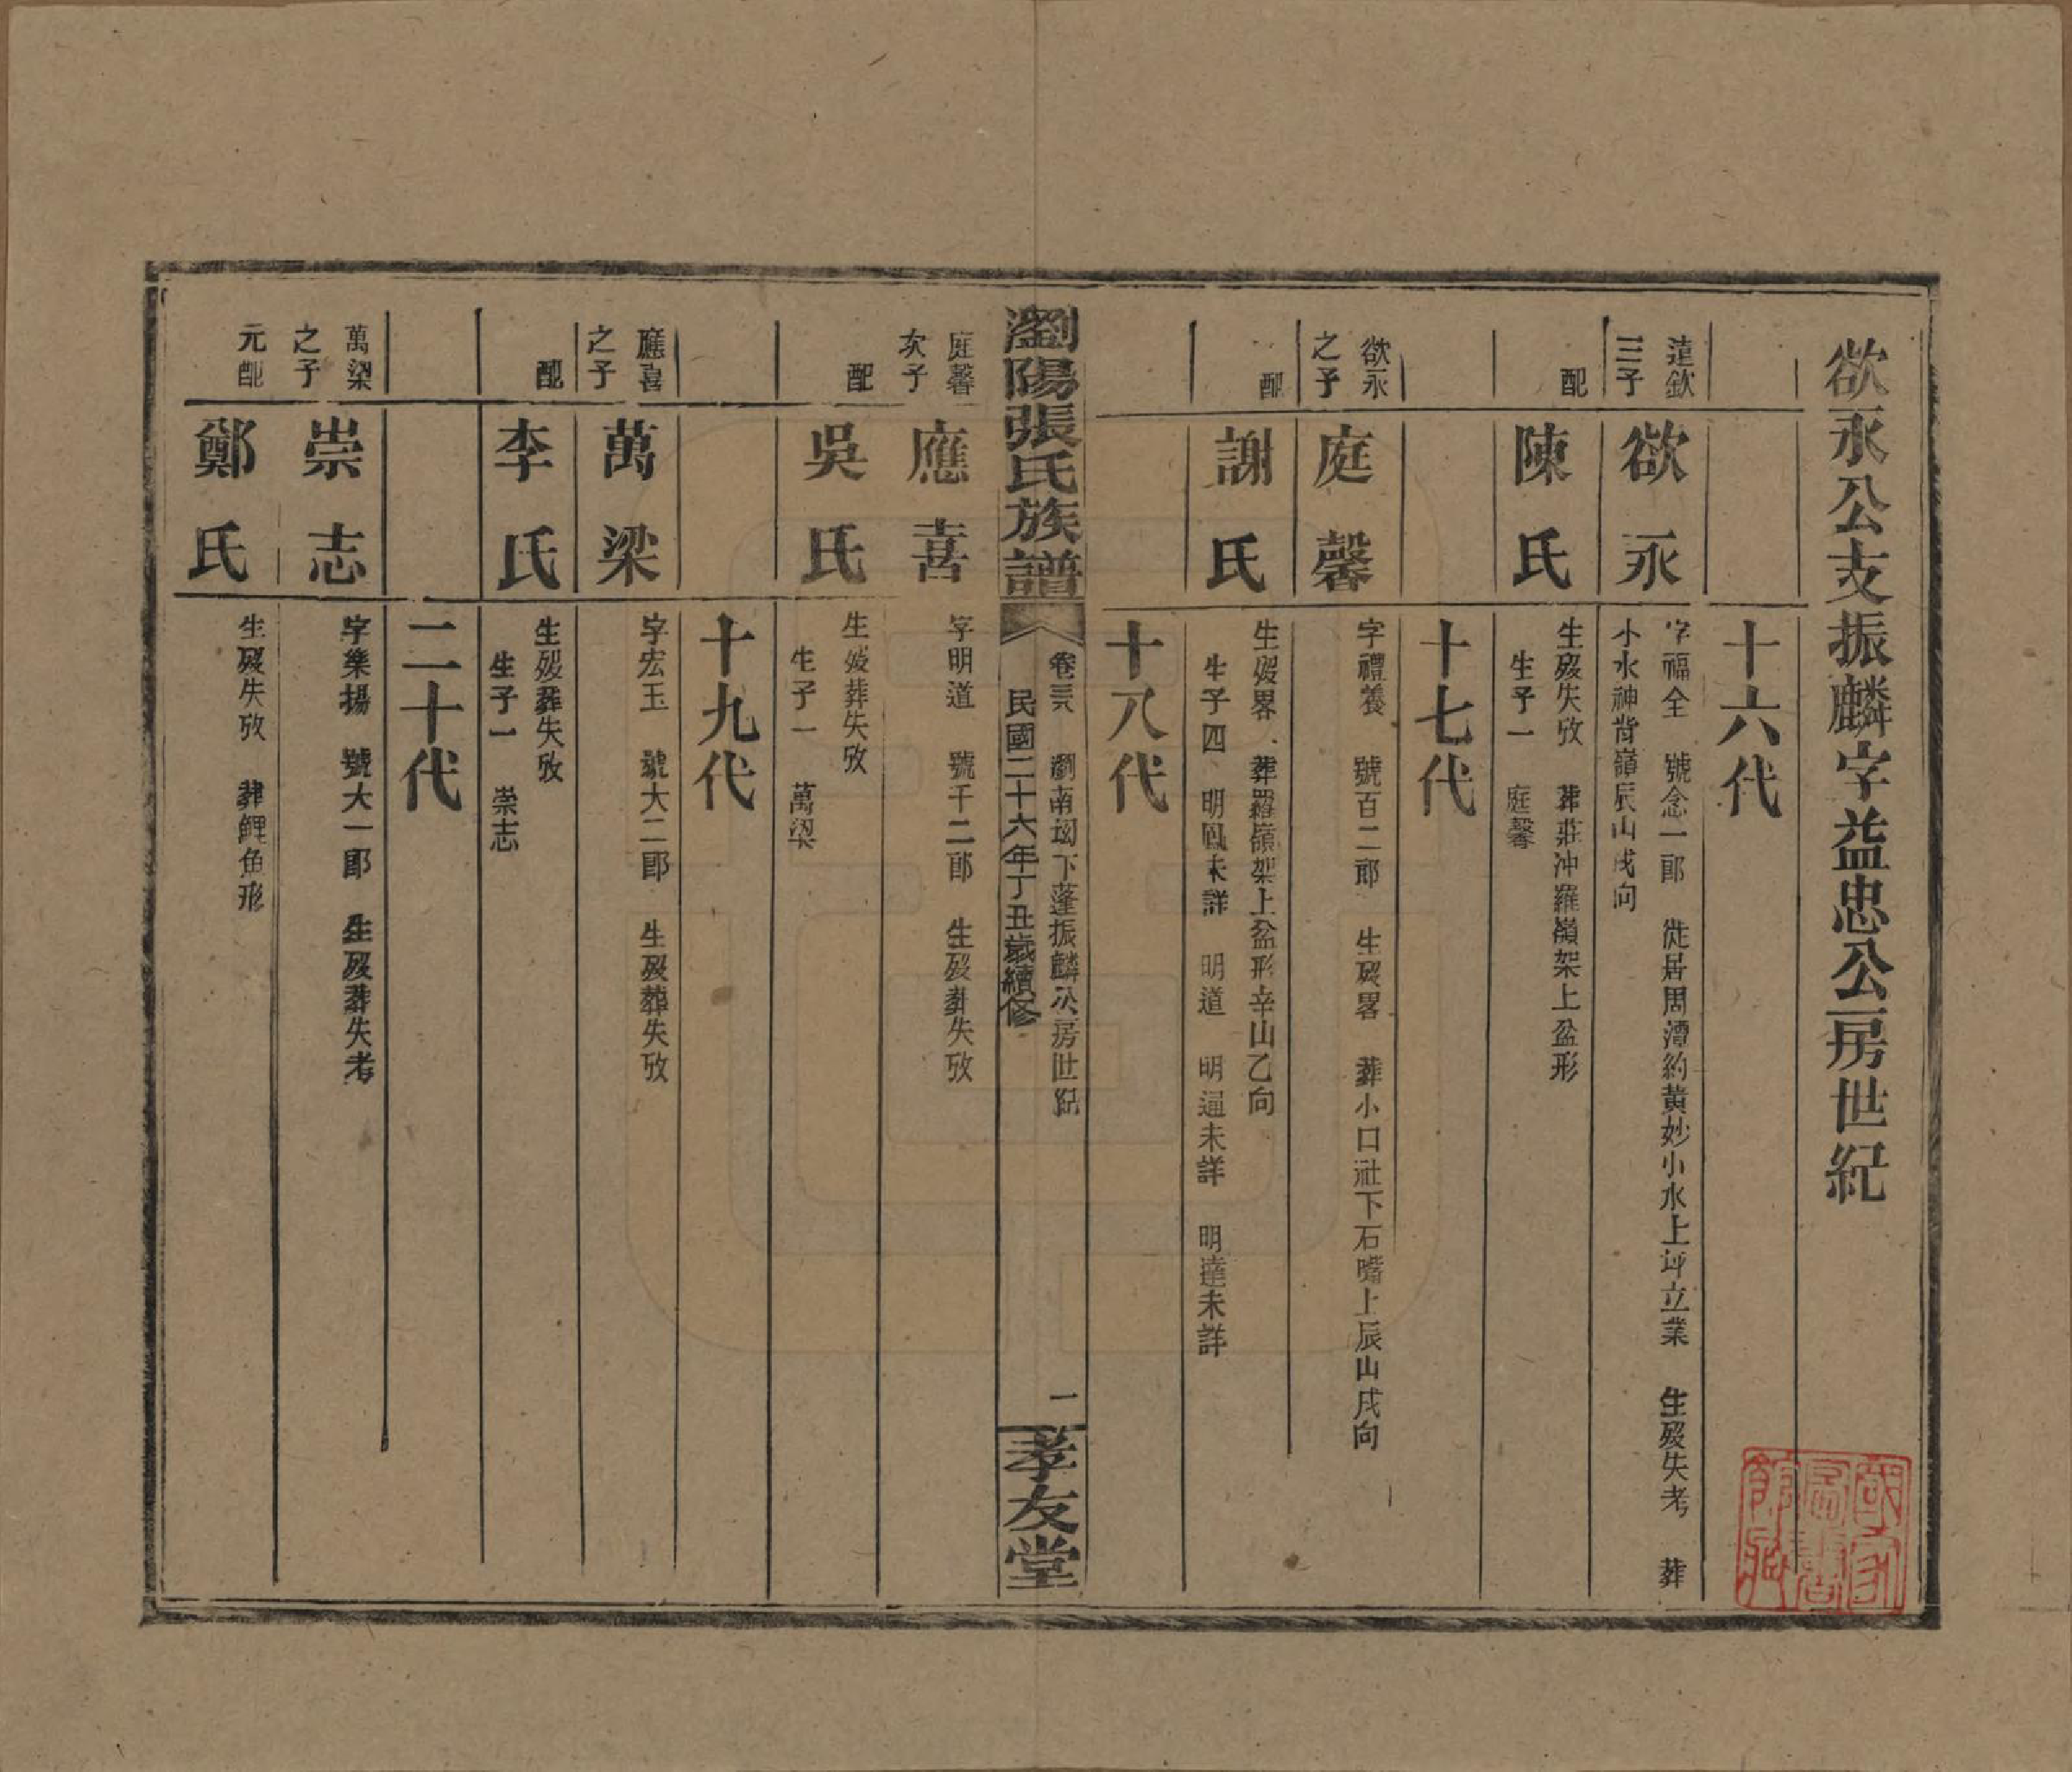 欲永公支振麟字益忠公房世紀
十六代
遠欽三子
欲永
字福全　號念一郎　徙居周潭約黃妙小水上坪立業　生歿失考　葬
小水神背嶺辰山戌向
配
陳氏
生歿失攷　葬莊冲羅嶺架上盆形
生子一　庭馨
十七代
欲永之子
庭馨
字禮養　號百二郎　生歿畧　葬小口社下石嘴上辰山戌向
配
謝氏
生歿畧　葬羅嶺架上盆形辛山乙向
生子四　明鳳未詳　明道　明通未詳　明達未詳
十八代
瀏陽張氏族譜
卷三六　瀏南坳下蓬振麟公房世紀　一
民國二十六年丁丑歲續修
孝友堂
庭馨次子
應喜
字明道　號千二郎　生歿葬失攷
配
吳氏
生歿葬失攷
生子一　萬梁
十九代
應喜之子
萬梁
字宏玉　號大二郎　生歿葬失攷
配
李氏
生歿葬失攷
生子一　崇志
二十代
萬梁之子
崇志
字樂揚　號大一郎　生歿葬失考
元配
鄭氏
生歿失攷　葬鯉魚形